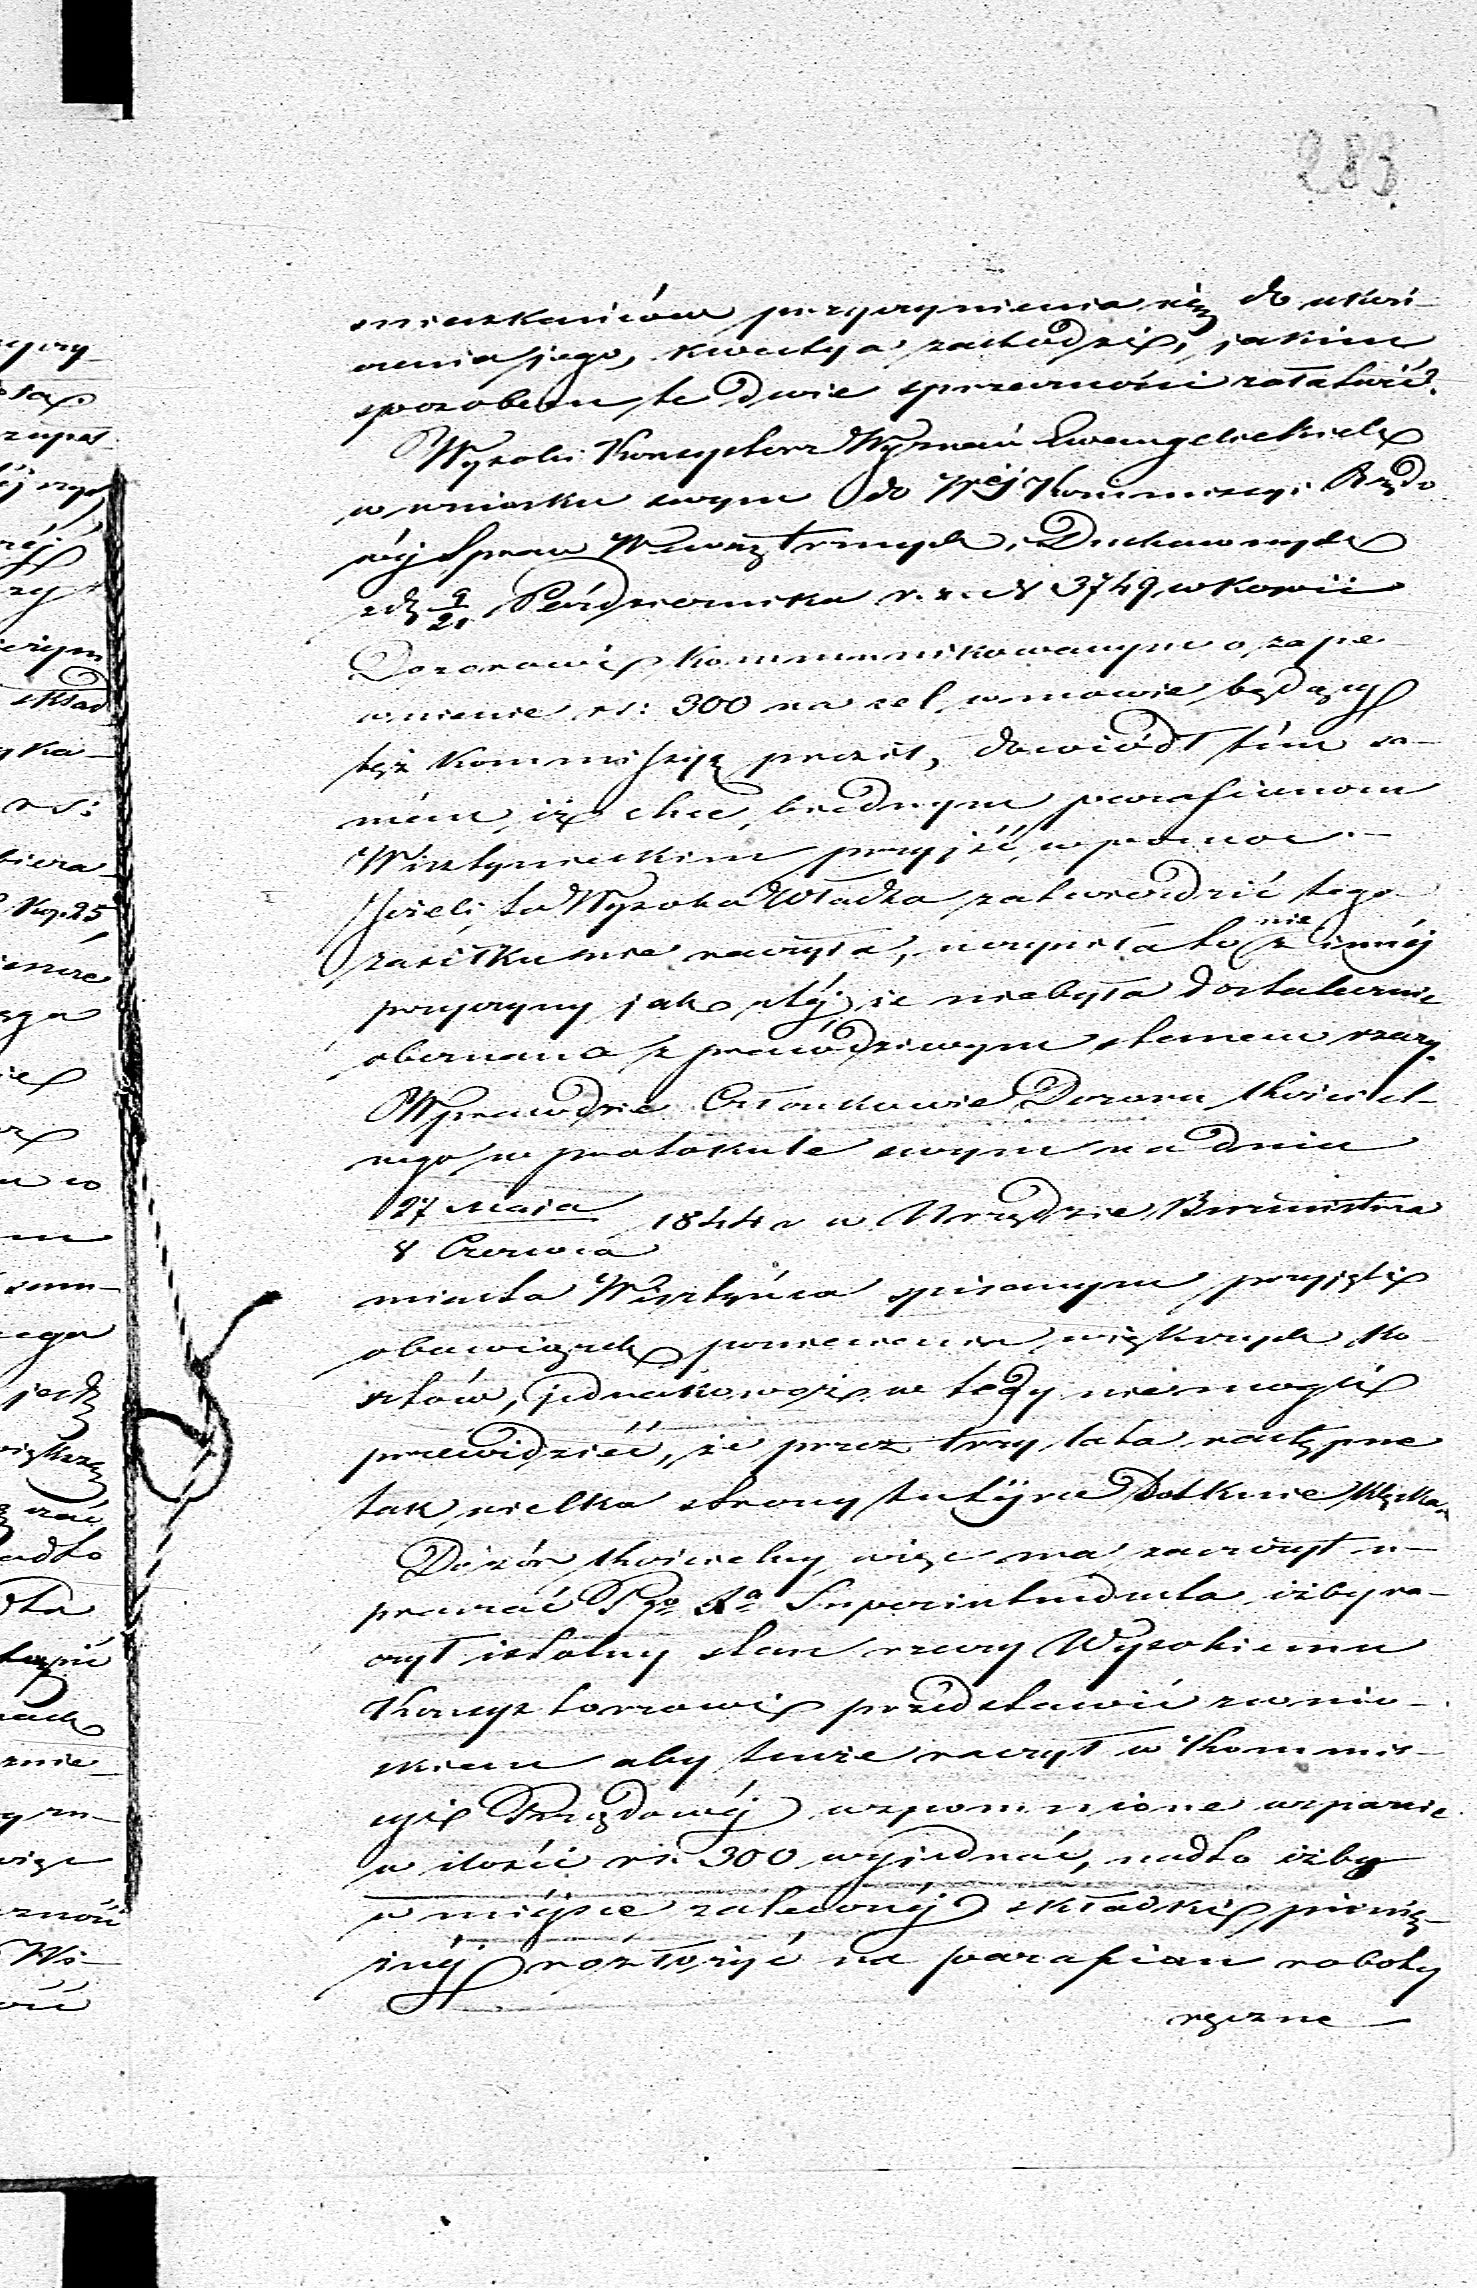 283
mieszkańców przyczynienia się do ukoń-
czenia jego, kwestya zachodzi, jakim
sposobem te dwie sprzeczności załatwić?
Wysoki Konsystorz Wyznań Ewangelickich
w wniosku swym do Wéj Kommissyi Rządo
wéj Spraw Wewnętrznych i Duchownych
z d. 9/21 Października r. z. N 3749 w kopii
Dozorowi kommunikowanym o zape
wnienie rs: 300 na cel w mowie będący
téż Kommissyą prosił, dowiódł tém sa-
mém, iż chce biednym parafianom
Wisztynieckim przyjść w pomoc.—
Jeżeli ta Wysoka Władza zatwierdzić tego
zasiłku nie raczyła, uczyniła to nie z innéj
przyczyny jak z téj, że niebyła dostatecznie
obeznana z prawdziwym stanem rzeczy.
Wprawdzie Członkowie Dozoru Kościel-
nego w protokule swym na dniu
27 Maja
8 Czerwca 1844 r w Urzędzie Burmistrza
miasta Wisztyńca spisanym przyjęli
obowiązek poniesienia większych ko-
sztów, jednakowoż w tedy niemogli
przewidzieć, że przez trzy lata następne
tak wielka strony tutéjsze dotknie klęska.
Dozór Kościelny więc ma zaszczyt u-
praszać Pgo Superintendenta, iżby ra-
czył istotny stan rzeczy Wysokiemu
Konsystorzowi przedstawić z wnio-
skiem aby tenże raczył w Kommis-
syi Rządowéj wspomnione wsparcie
w ilości rs. 300 wyjednać, nadto iżby
w miéjsce zaleconéj składki pienię-
żnéj rozłożyć na parafian roboty
ręczne